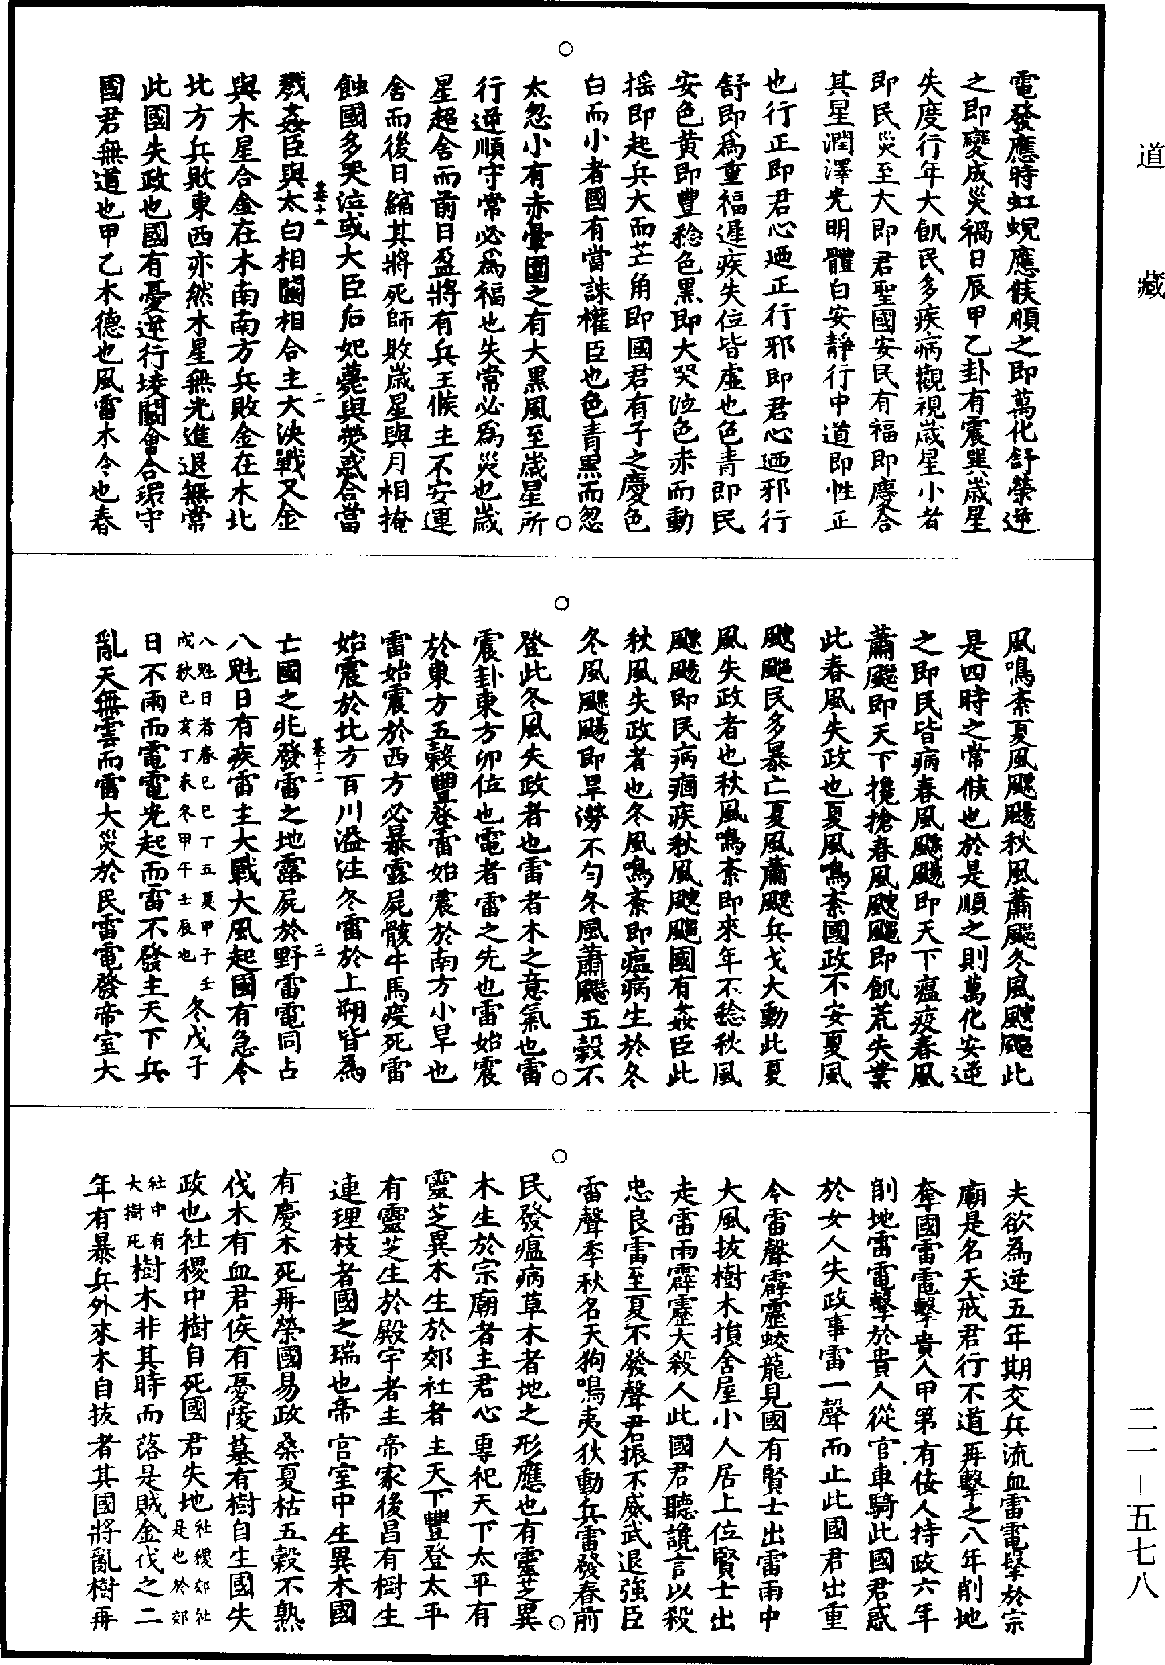 道藏
電發應時虹蜺應候順之即萬化舒榮逆
之即變成災禍日辰甲乙卦有震巽歲星
失度行年大飢民多疾病觀視歲星小者
即民災至大即君聖國安民有福即應合
其星潤澤光明體白安靜行中道即性正
也行正即君心迺正行邪即君心迺邪行
舒即為重福遲疾失位皆虛也色青即民
安色黃即豐稔色黑即大哭泣色赤而動
搖即起兵大而芒角即國君有子之慶色
白而小者國有當誅權臣也色青黑而忽
太忽小有赤暈國之有大黑風至歲星所
行逆順守常必為福也失常必為災也歲
星超舍而前日盈將有兵王候主不安運
舍而後日縮其將死師敗歲星與月相掩
蝕國多哭泣或大臣后妃薨與熒惑合當
戮姦臣與太白相鬭相合主大決戰又金
與木星合金在木南南方兵敗金在木北
北方兵敗東西亦然木星無光進退無常
此國失政也國有憂逆行堎鬭會合環守
國君無道也甲乙木德也風雷木令也春
風鳴紊夏風颸颺秋風蕭颼冬風颼颸此
是四時之常候也於是順之則萬化安逆
之即民皆病春風颸颺即天下瘟疫春風
蕭颼即天下攙搶春風颼颸即飢荒失業
此春風失政也夏風鳴紊國政不安夏風
颼颸民多暴亡夏風蕭颼兵戈大動此夏
風失政者也秋風鳴紊即來年不稔秋風
颸颺即民病痼疾秋風颼颸國有姦臣此
秋風失政者也冬風鳴紊即瘟病生於冬
冬風颸颺即旱澇不勻冬風蕭颼五穀不
登此冬風失政者也雷者木之意氣也雷
震卦東方卯位也電者雷之先也雷始震
於東方五穀豐登雷始震於南方小旱也
雷始震於西方必暴露屍骸牛馬疫死雷
始震於北方百川溢注冬雷於上朔皆為
亡國之兆發雷之地露屍於野雷電同占
八魁日有疾雷主大戰大風起國有急令
八魁日者春己巳丁丑夏甲子壬
戌秋己亥丁未冬甲午壬辰也 冬戊子
日不雨而電電光起而雷不發主天下兵
亂天無雲而雷大災於民雷電發帝室大
夫欲為逆五年期交兵流血雷電擊於宗
廟是名天戒君行不道再擊之八年削地
奪國雷電擊貴人甲第有佞人持政六年
削地雷電擊於貴人從官車騎此國君惑
於女人失政事雷一聲而止此國君出重
令雷聲霹靂蛟龍見國有賢士出雷雨中
大風拔樹木損舍屋小人居上位賢士出
走雷雨霹靂大殺人此國君聽讒言以殺
忠良雷至夏不發聲君振不威武退強臣
雷聲季秋名天狗鳴夷狄動兵雷發春前
民發瘟病草木者地之形應也有靈芝異
木生於宗廟者主君心專祀天下太平有
靈芝異木生於郊社者主天下豐登太平
有靈芝生於殿宇者主帝家後昌有樹生
連理枝者國之瑞也帝宮室中生異木國
有慶木死再榮國易政桑夏枯五穀不熟
伐木有血君侯有憂陵墓有樹自生國失
政也社稷中樹自死國君失地社稷郊社是也於郊
社中有大樹死樹木非其時而落是賊金伐之二
年有暴兵外來木自拔者其國將亂樹再
二一—五七八